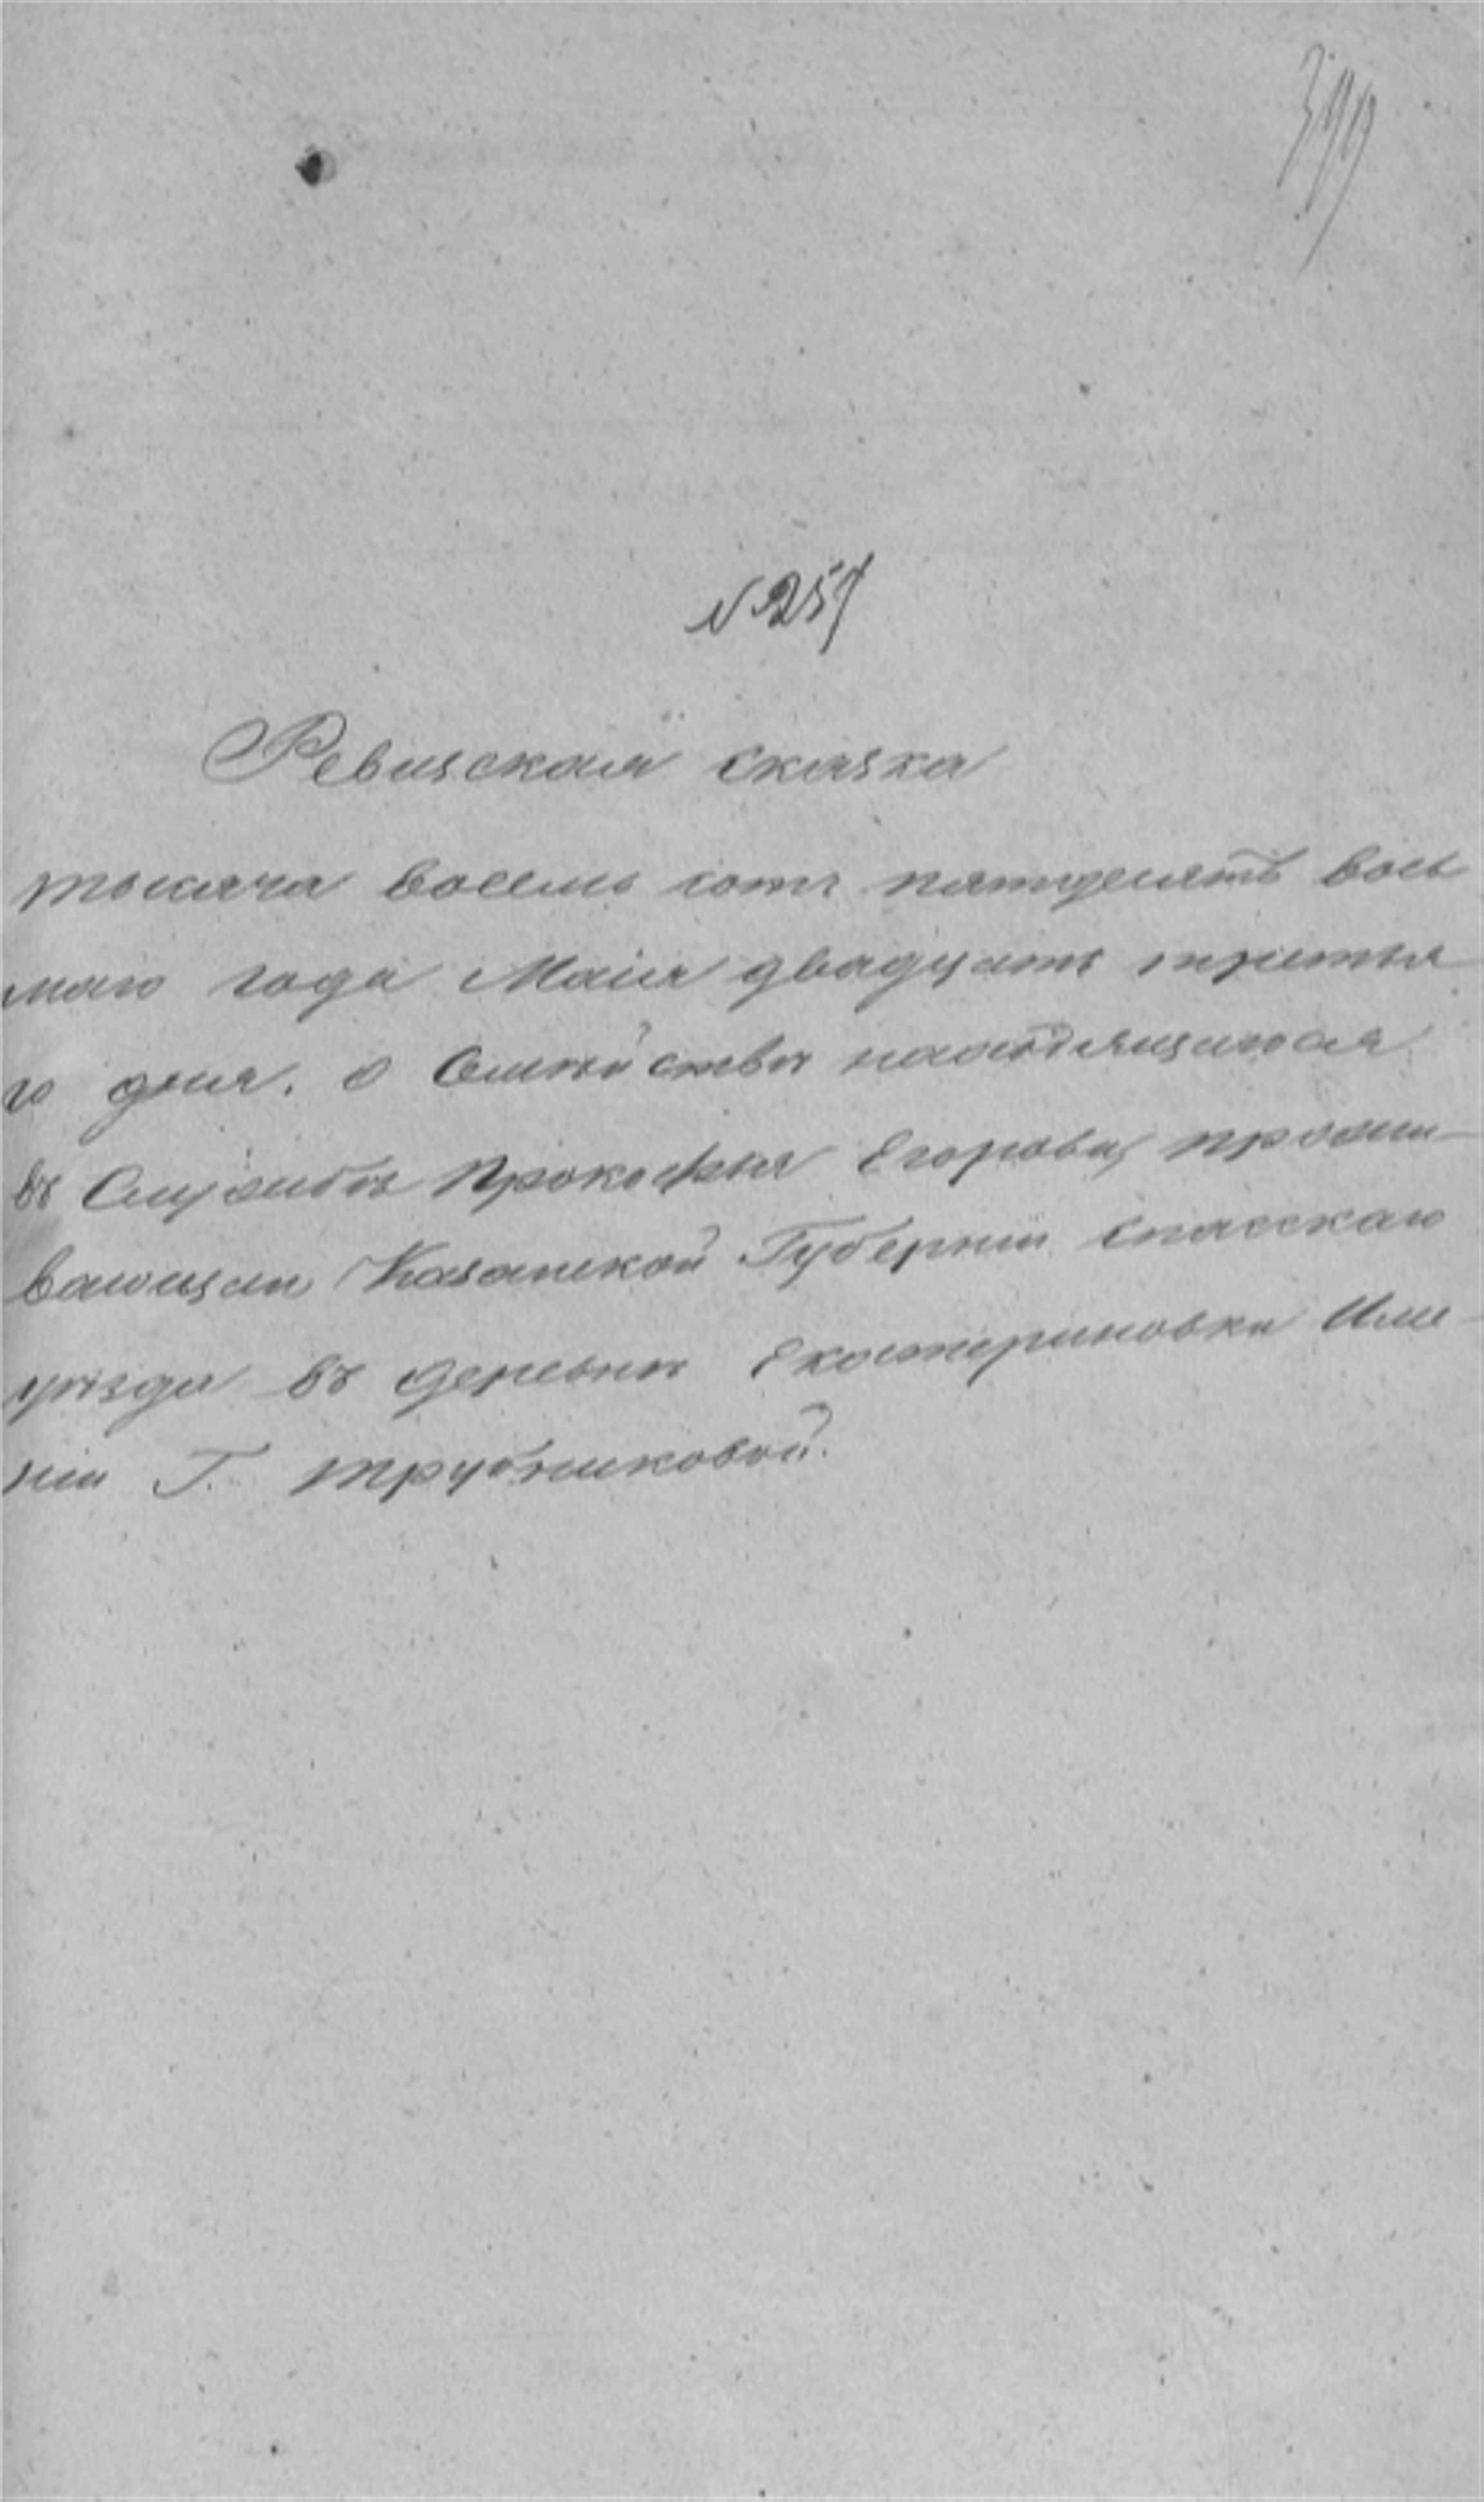 399
№ 257
Ревизская сказка
тысяча восемь сотъ пятидесятъ вось
маго года Маія двадцать третья
го дня. о Семействѣ находящагося
въ Службѣ Прокофья Егорова, прожи-
вающии Казанской Губерніи спаскаго
уѣзда въ деревни Екатериновки Име-
ніи Г. Трубниковой.